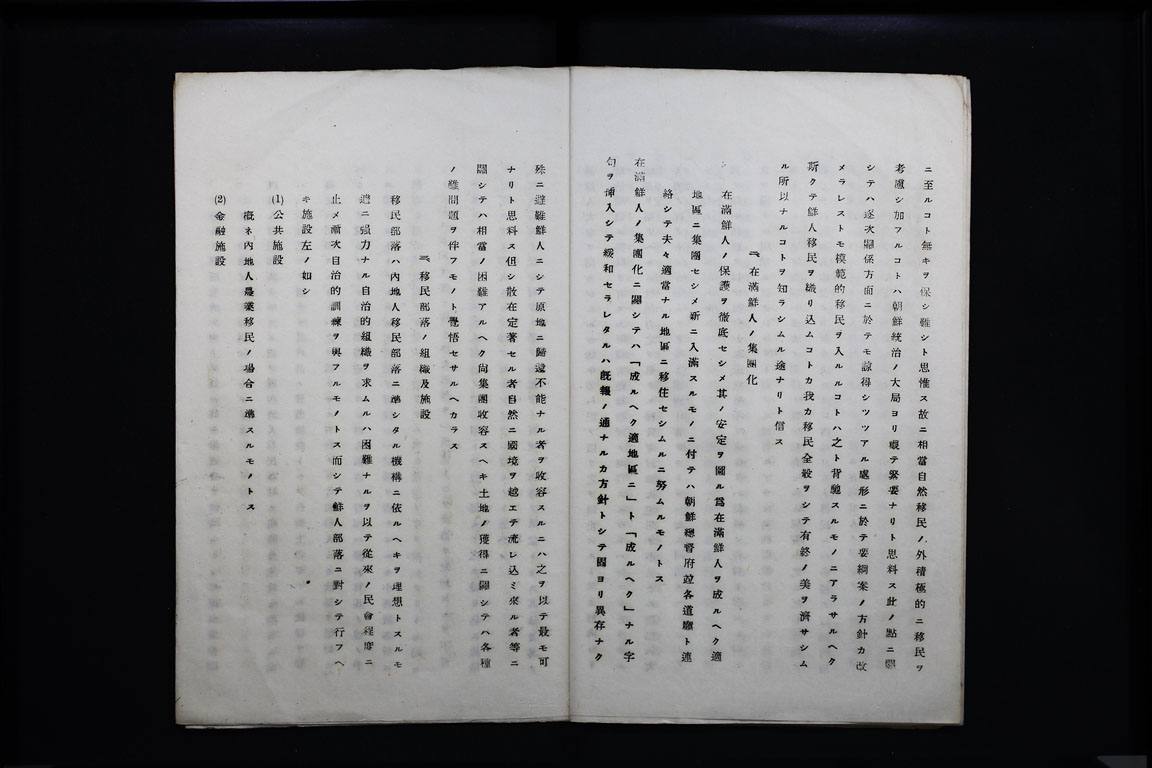 ニ至ルコト無キヲ保シ難シト思惟ス故ニ相當自然移民ノ外積極的ニ移民ヲ
考慮シ加フルコトハ朝鮮統治ノ大局ヨリ觀テ緊要ナリト思料ス此ノ點ニ關
シテハ逐次關係方面ニ於テモ諒得シツツアル處形ニ於テ要綱案ノ方針カ改
メラレストモ模範的移民ヲ入ルルコトハ之ト背馳スルモノニアラサルヘク
斯クテ鮮人移民ヲ織リ込ムコトカ我カ移民全般ヲシテ有終ノ美ヲ濟サシム
ル所以ナルコトヲ知ラシムル途ナリト信ス
二、在滿鮮人ノ集團化
在滿鮮人ノ保護ヲ徹底セシメ其ノ安定ヲ圖ル爲在滿鮮人ヲ成ルヘク適
地區ニ集團セシメ新ニ入滿スルモノニ付テハ朝鮮總督府竝各道廳ト連
絡シテ夫々適當ナル地區ニ移住セシムルニ努ムルモノトス
在滿鮮人ノ集團化ニ關シテハ「成ルヘク適地區ニ」ト「成ルヘク」ナル字
句ヲ挿入シテ緩和セラレタルハ既報ノ通ナルカ方針トシテ固ヨリ異存ナク
殊ニ避難鮮人ニシテ原地ニ歸還不能ナル者ヲ收容スルニハ之ヲ以テ最モ可
ナリト思料ス但シ散在定著セル者自然ニ國境ヲ越エテ流レ込ミ來ル者等ニ
關シテハ相當ノ困難アルヘク尚集團收容スヘキ土地ノ獲得ニ關シテハ各種
ノ難問題ヲ伴フモノト覺悟セサルヘカラス
三、移民部落ノ組織及施設
移民部落ハ內地人移民部落ニ準シタル機構ニ依ルヘキヲ理想トスルモ
遽ニ强力ナル自治的組織ヲ求ムルハ困難ナルヲ以テ從來ノ民會程度ニ
止メ漸次自治的訓練ヲ與フルモノトス而シテ鮮人部落ニ對シテ行フヘ
キ施設左ノ如シ
(1)公共施設
概ネ內地人農業移民ノ場合ニ準スルモノトス
(2)金融施設